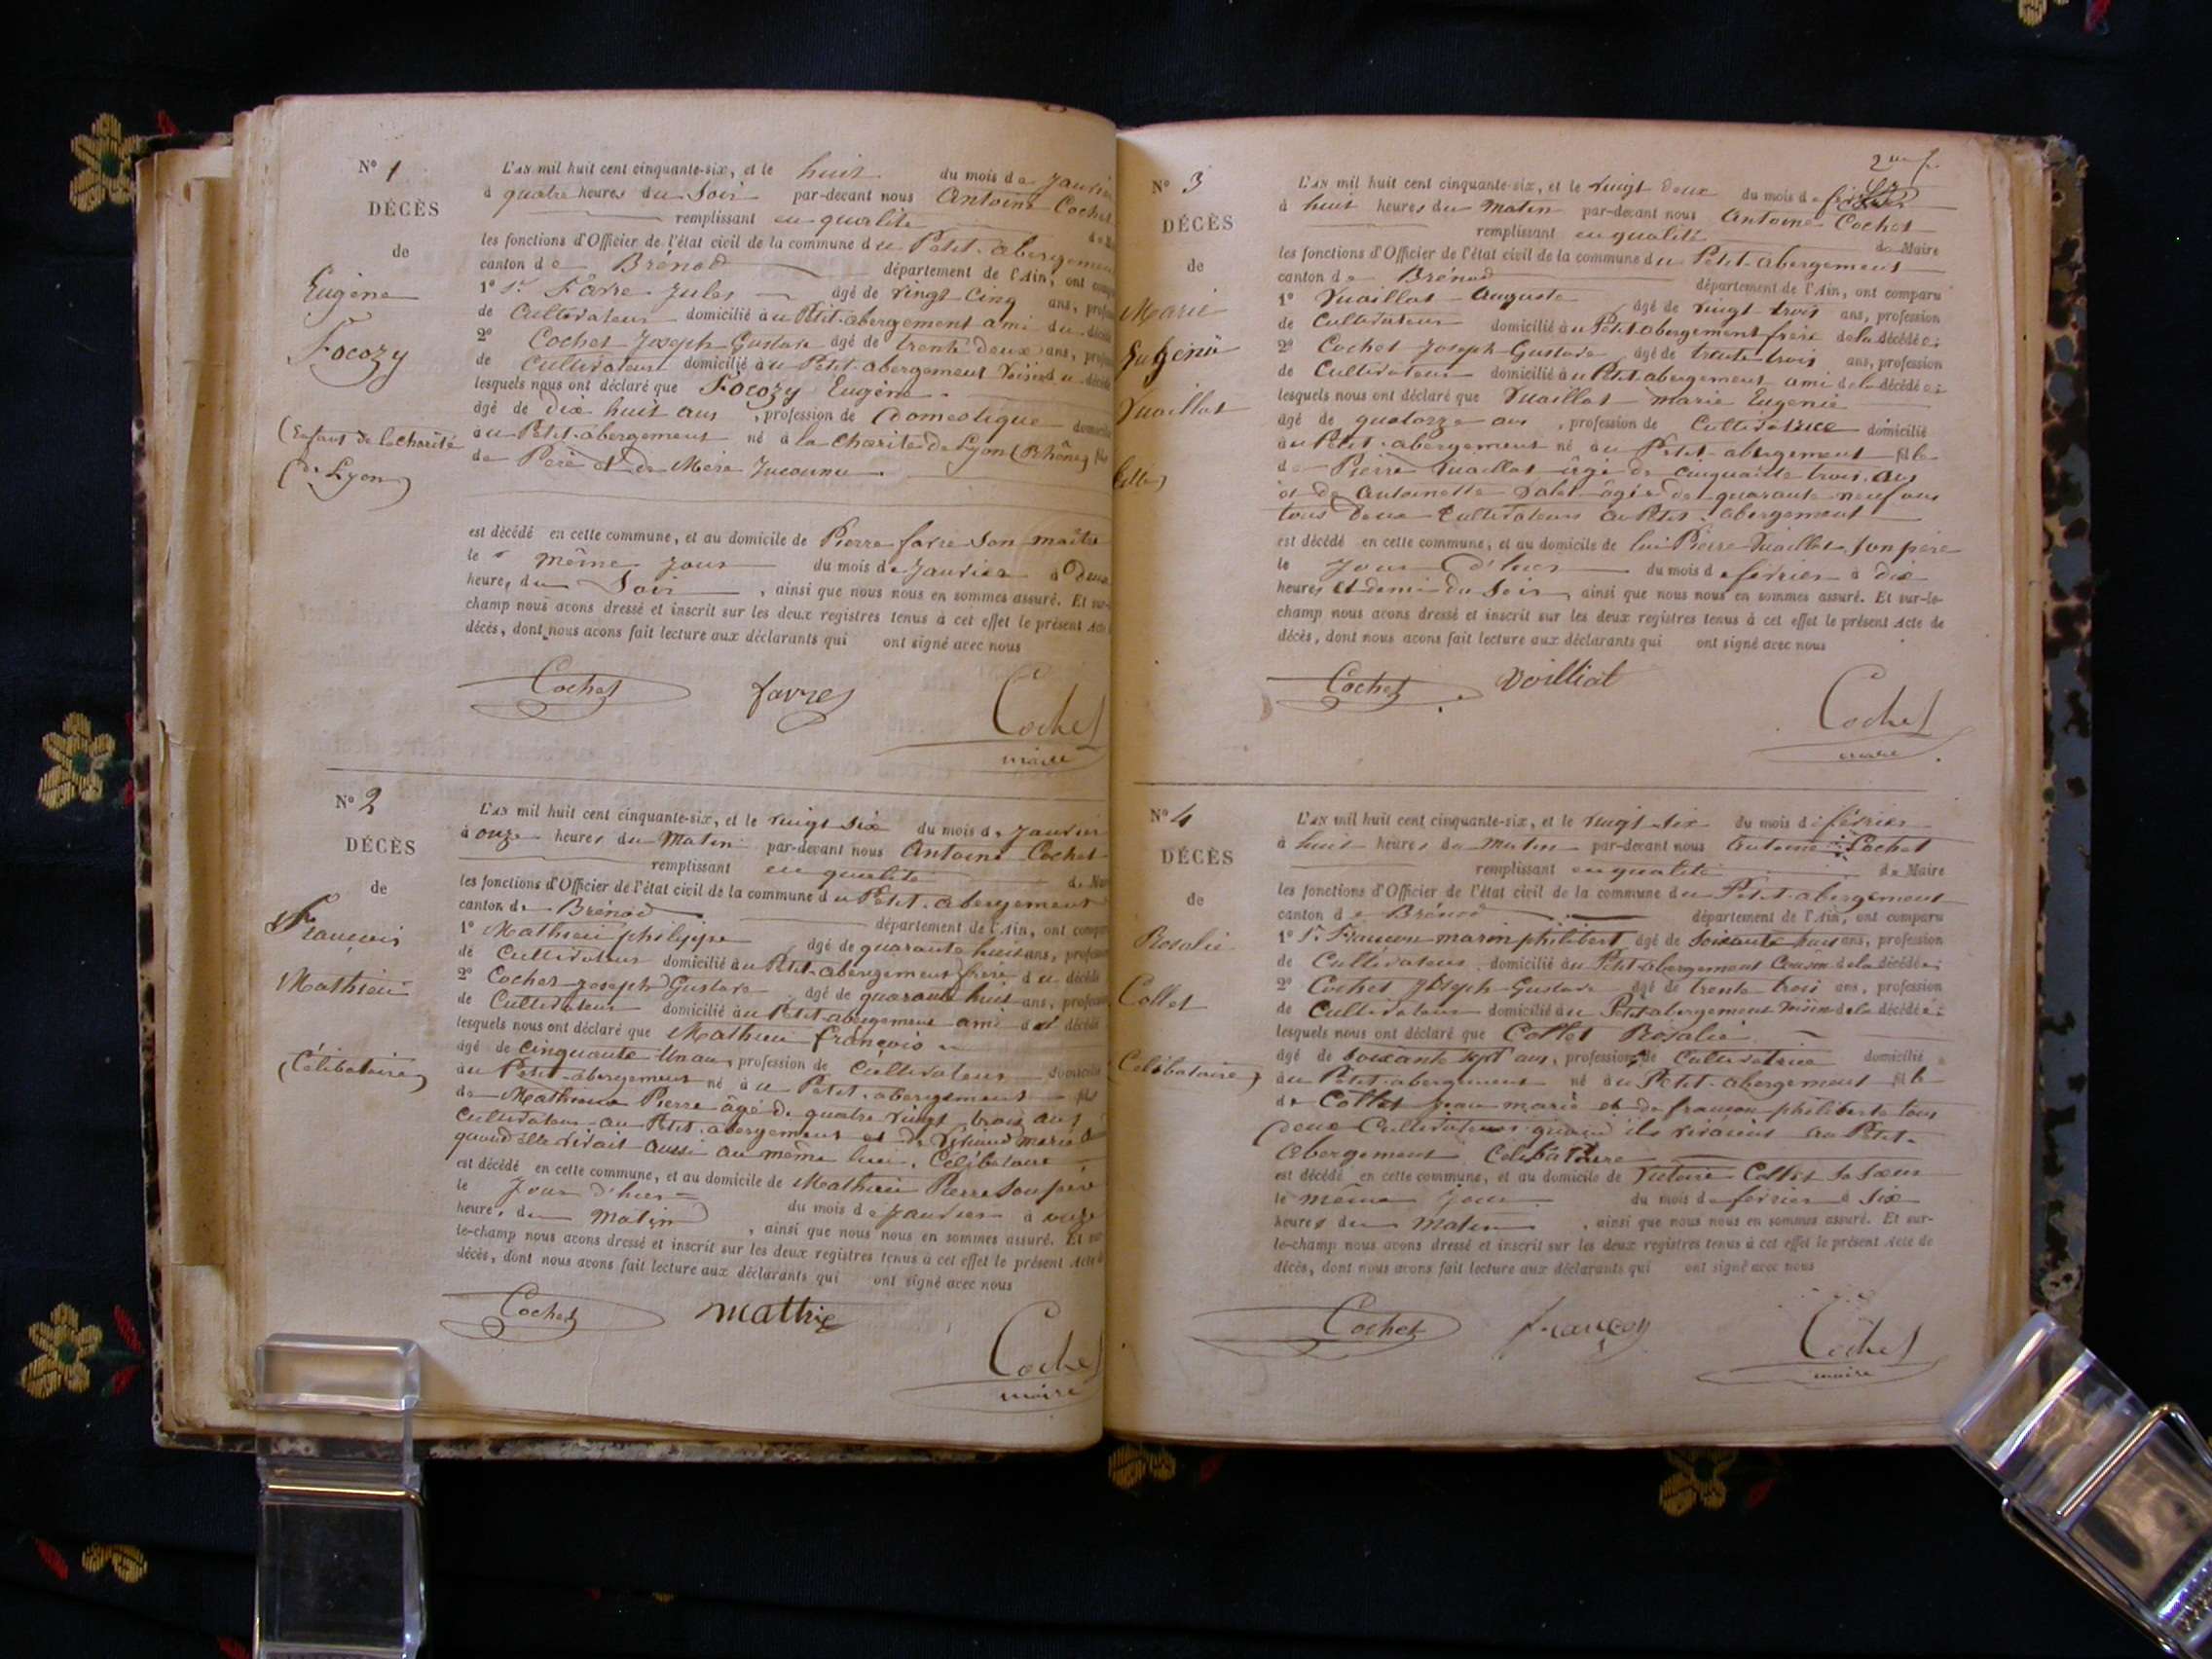 N° 1
DÉCÈS
de
Eugène
Focozy
(Enfant de la charité
de Lyon)
L'AN mil huit cent cinquante-six, et le huit du mois de Janvier
à quatre heures du Soir par-devant nous Antoine Cochet
remplissant en qualité de
les fonctions d'Officier de l'état civil de la commune du Petit-abergement
canton de Brénod département de l'Ain, ont
1° Sr Favre Jules âgé de vingt cinq ans,
de Cultivateur domicilié au Petit-abergement ami du décédé
2° Cochet Joseph Gustave âgé de trente deux ans,
de Cultivateur domicilié au Petit-abergement voisin du décédé
lesquels nous ont déclaré que Focozy Eugène
âgé de dix huit ans, profession de Domestique
au Petit-abergement né à la Charité de Lyon (Rhône) fils
de Père et de Mère Inconnu.
est décédé en cette commune, et au domicile de Pierre favre Son maître
le même jour du mois de Janvier à Deux
heures du Soir, ainsi que nous nous en sommes assuré. Et sur-
champ nous avons dressé et inscrit sur les deux registres tenus à cet effet le présent Acte
décès, dont nous avons fait lecture aux déclarants qui ont signé avec nous
Cochet favre Cochet
maire
N° 2
DÉCÈS
de
François
Mathieu
(Célibataire)
L'AN mil huit cent cinquante-six, et le vingt six du mois de Janvier
à onze heures du Matin par-devant nous Antoine Cochet
remplissant en qualité de
les fonctions d'Officier de l'état civil de la commune du Petit-abergement
canton de Brénod département de l'Ain, ont
1° Mathieu philippe âgé de quarante huit ans,
de Cultivateur domicilié au Petit-abergement frère du décédé
2° Cochet Joseph Gustave âgé de quarante huit ans,
de Cultivateur domicilié au Petit-abergement ami du décédé
lesquels nous ont déclaré que Mathieu françois
âgé de Cinquante Un ans, profession de Cultivateur domicilié
au Petit-abergement né au Petit-abergement fils
de Mathieu Pierre âgé de quatre vingt trois ans
Cultivateur au Petit-abergement et de marie
quand elle vivait aussi au même lieu, Célibataire
est décédé en cette commune, et au domicile de Mathieu Pierre Son père
le Jour d'hier du mois de Janvier à onze
heures du Matin, ainsi que nous nous en sommes assuré. Et sur
le-champ nous avons dressé et inscrit sur les deux registres tenus à cet effet le présent Acte
décès, dont nous avons fait lecture aux déclarants qui ont signé avec nous
Cochet Mathie Cochet
maire
N° 3
DÉCÈS
de
Marie
Eugénie
Vuaillat
L'AN mil huit cent cinquante-six, et le vingt deux du mois de février
à huit heures du Matin par-devant nous Antoine Cochet
remplissant en qualité de Maire
les fonctions d'Officier de l'état civil de la commune du Petit-abergement
canton de Brénod département de l'Ain, ont comparu
1° Vuaillat Auguste âgé de vingt trois ans, profession
de Cultivateur domicilié au Petit-abergement frère de la décédée:
2° Cochet Joseph Gustave âgé de trente trois ans, profession
de Cultivateur domicilié au Petit-abergement ami de la décédée:
lesquels nous ont déclaré que Vuaillat marie Eugénie
âgé de quatorze ans, profession de Cultivatrice domicilié
au Petit-abergement né au Petit-abergement fille
de Pierre Vuaillat âgé de cinquante trois ans
et de Antoinette âgée de quarante neuf ans
tous deux Cultivateurs au Petit-abergement
est décédé en cette commune, et au domicile de lui Pierre Vuaillat, Son père
le Jour d'hier du mois de février à dix
heures et demi du Soir, ainsi que nous nous en sommes assuré. Et sur-le-
champ nous avons dressé et inscrit sur les deux registres tenus à cet effet le présent Acte de
décès, dont nous avons fait lecture aux déclarants qui ont signé avec nous
Cochet Voilliat Cochet
maire
N° 4
DÉCÈS
de
Rosalie
Collet
(Célibataire)
L'AN mil huit cent cinquante-six, et le vingt-six du mois de février
à huit heures du Matin par-devant nous Antoine Cochet
remplissant en qualité de Maire
les fonctions d'Officier de l'état civil de la commune du Petit-abergement
canton de Brénod département de l'Ain, ont comparu
1° Sr Françon marin philibert âgé de Soixante huit ans, profession
de Cultivateur domicilié au Petit-abergement Cousin de la décédée:
2° Cochet Joseph Gustave âgé de trente trois ans, profession
de Cultivateur domicilié au Petit-abergement voisin de la décédée:
lesquels nous ont déclaré que Collet Rosalie
âgé de soixante sept ans, profession de Cultivatrice domicilié
au Petit-abergement né au Petit-abergement fille
de Collet Jean marie et de françon philiberte tous
deux Cultivateurs quand ils vivaient au Petit-
Abergement Célibataire
est décédé en cette commune, et au domicile de Collet Sa Sœur
le même jour du mois de février à Six
heures du Matin, ainsi que nous nous en sommes assuré. Et sur-
le-champ nous avons dressé et inscrit sur les deux registres tenus à cet effet le présent Acte de
décès, dont nous avons fait lecture aux déclarants qui ont signé avec nous
Cochet françon Cochet
maire